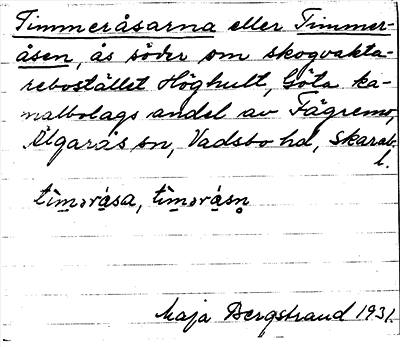 Timmeråsarna eller Timmer-
åsen, ås söder om skogvakta-
rebostället Höghult, Göta ka-
nalbolags andel av Fägremo,
Älgarås sn, Vadsbo hd, Skarab.
l.
tìmərå̀sa, tìmərå̀sn̥
Maja Bergstrand 1931.